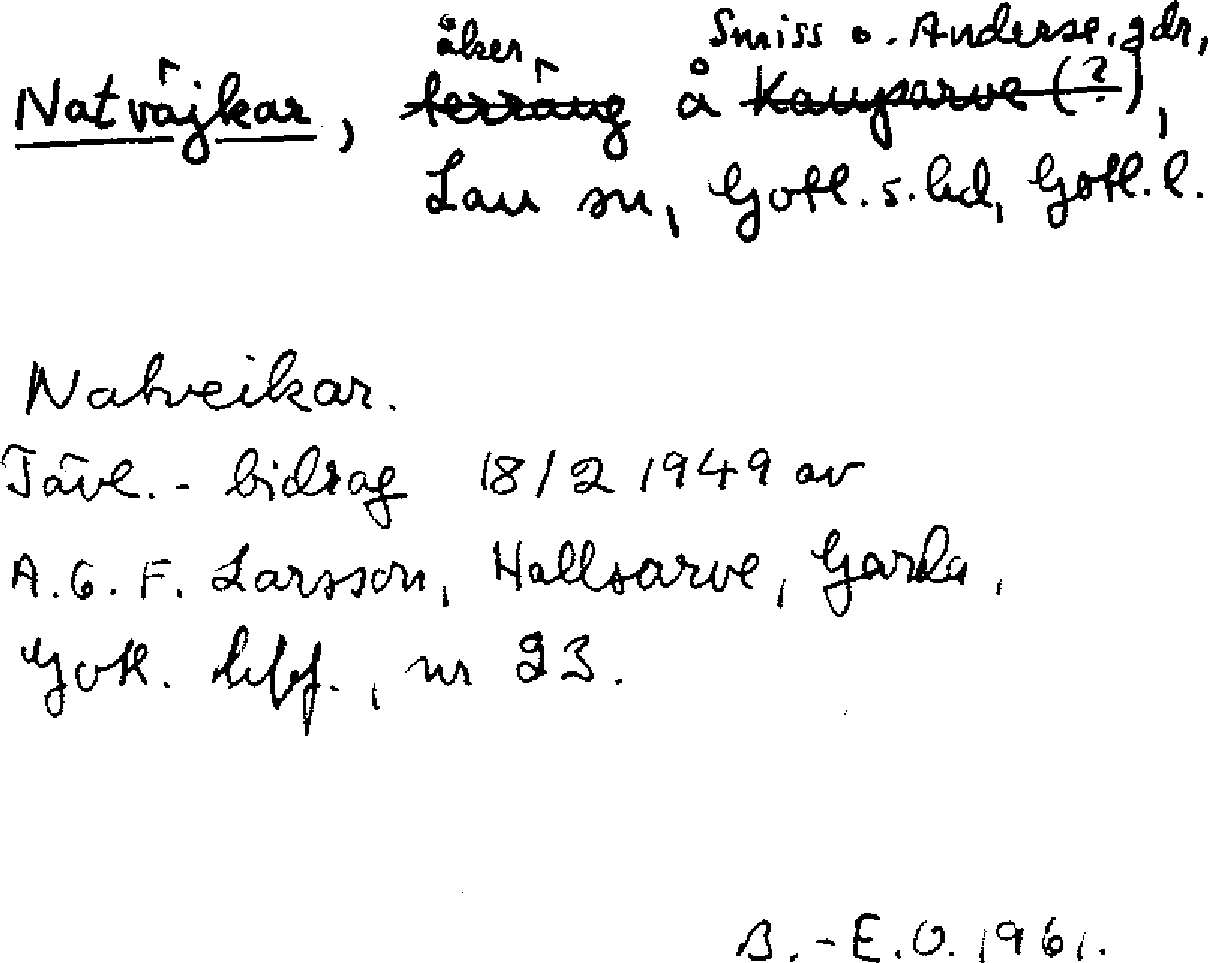 åker Smiss o. Anderse, gdr,
Natväjkar, terräng å Kauparve (?),
Lau sn, Gotl. s. hd, Gotl. l.
Natveikar.
Tävl.-bidrag 18/2 1949 av
A. G. F. Larsson, Hallsarve, Garda,
Gotl. , nr 23.
B.-E.O. 1961.